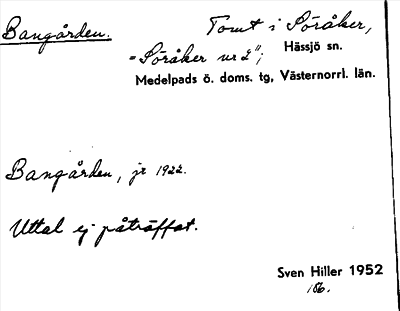 Bangården.
Tomt i Söråker,
"Söråker nr 2";
Hässjö sn.
Medelpads ö. doms. tg, Västernorrl. län.
Bangården, jr 1922.
Uttal ej påträffat.
Sven Hiller 1952